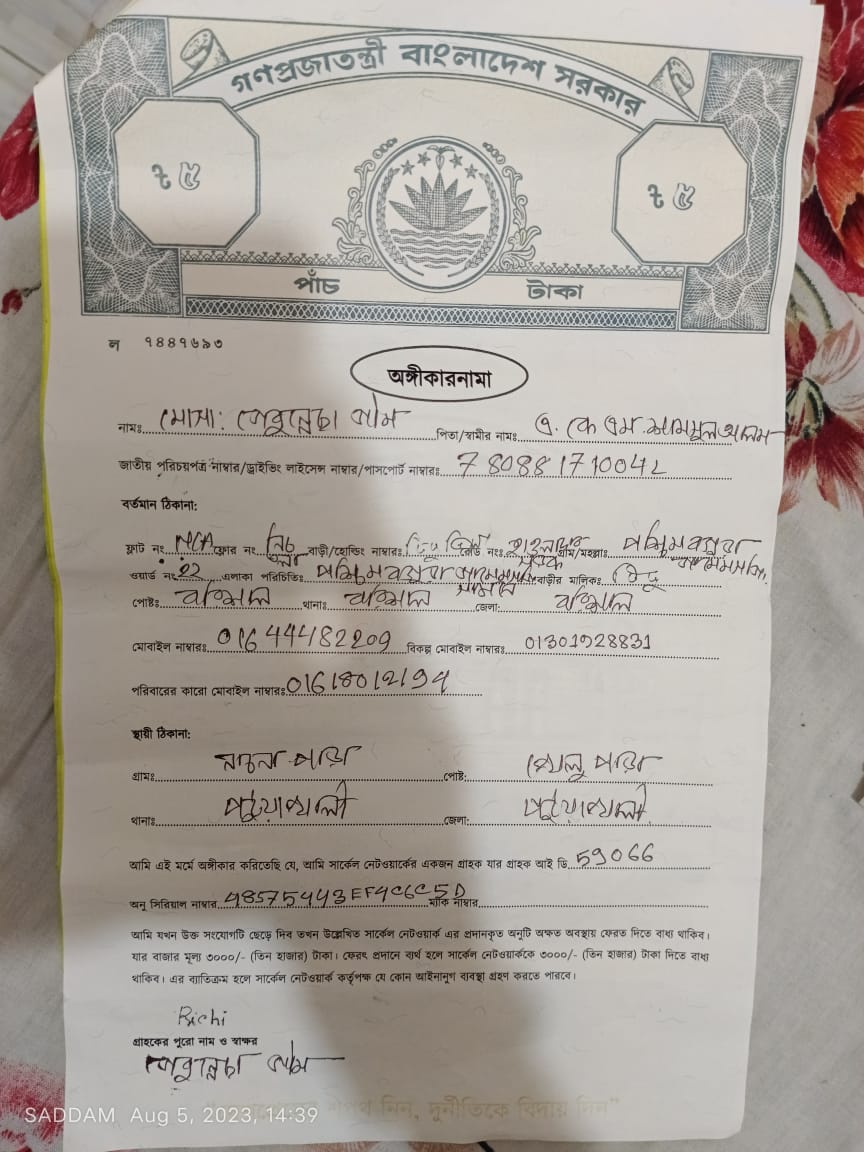 গণপ্রজাতন্ত্রী বাংলাদেশ সরকার
৳ ৫ ৳ ৫
পাঁচ টাকা
ল ৭৪৪৭৬৯৩
অঙ্গীকারনামা
নামঃ মোসা: পিতা/স্বামীর নামঃ এ. কে এম আলম
জাতীয় পরিচয়পত্র নাম্বার/ড্রাইভিং লাইসেন্স নাম্বার/পাসপোর্ট নাম্বারঃ 780881710042
বর্তমান ঠিকানা:
ফ্লাট নং ফ্লোর নং নিচ তলা বাড়ী/হোল্ডিং নাম্বারঃ রোড নংঃ গ্রাম/মহল্লাঃ পশ্চিম
ওয়ার্ড নং 22 এলাকা পরিচিতিঃ পশ্চিম বাড়ীর মালিকঃ
পোষ্টঃ বরিশাল থানাঃ বরিশাল জেলা: বরিশাল
মোবাইল নাম্বারঃ 01644482209 বিকল্প মোবাইল নাম্বারঃ 01301928831
পরিবারের কারো মোবাইল নাম্বারঃ
স্থায়ী ঠিকানা:
গ্রামঃ পাড়া পোষ্ট: পাড়া
থানাঃ পটুয়াখালী জেলা: পটুয়াখালী
আমি এই মর্মে অঙ্গীকার করিতেছি যে, আমি সার্কেল নেটওয়ার্কের একজন গ্রাহক যার গ্রাহক আই ডি 59066
অনু সিরিয়াল নাম্বার 48575443EF4C6C5D ম্যাক নাম্বার
আমি যখন উক্ত সংযোগটি ছেড়ে দিব তখন উল্লেখিত সার্কেল নেটওয়ার্ক এর প্রদানকৃত অনুটি অক্ষত অবস্থায় ফেরত দিতে বাধ্য থাকিব।
যার বাজার মূল্য ৩০০০/- (তিন হাজার) টাকা। ফেরৎ প্রদানে ব্যর্থ হলে সার্কেল নেটওয়ার্ককে ৩০০০/- (তিন হাজার) টাকা দিতে বাধ্য
থাকিব। এর ব্যতিক্রম হলে সার্কেল নেটওয়ার্ক কর্তৃপক্ষ যে কোন আইনানুগ ব্যবস্থা গ্রহণ করতে পারবে।
Richi
গ্রাহকের পুরো নাম ও স্বাক্ষর
শপথ নিন, দুর্নীতিকে বিদায় দিন”
SADDAM Aug 5, 2023, 14:39